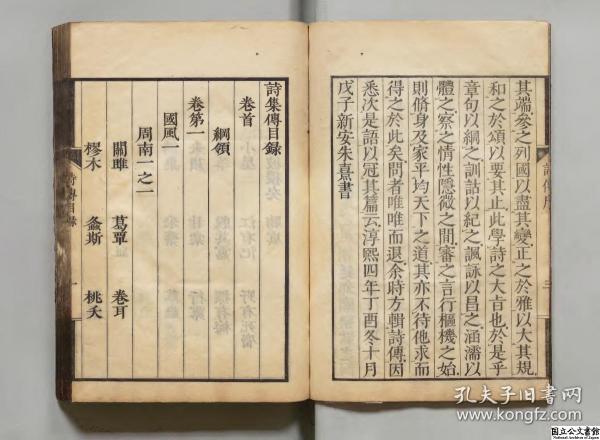 詩傳序
其端參之列國以盡其變正之於雅以大其規
和之於頌以要其止此學詩之大旨也於是乎
章句以綱之訓詁以紀之諷詠以昌之涵濡以
體之察之情性隱微之間審之言行樞機之始
則脩身及家平均天下之道其亦不待他求而
得之於此矣問者唯唯而退余時方輯詩傳因
悉次是語以冠其篇云淳熙四年丁酉冬十月
戊子新安朱熹書
詩集傳目錄
卷首
綱領
卷第一
國風一
周南一之一
關雎 葛覃 卷耳
樛木 螽斯 桃夭
詩傳目錄 一
孔夫子旧书网
kongfz.com
国立公文書館
National Archives of Japan